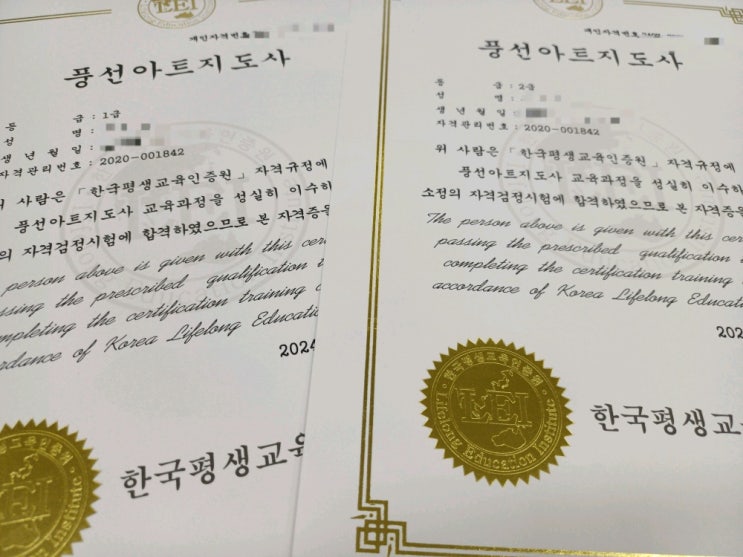 개인자격번호
풍선아트지도사
등 급 : 1급
성 명 :
생 년 월 일 :
자격관리번호 : 2020-001842
위 사람은 「한국평생교육인증원」 자격규정에
풍선아트지도사 교육과정을 성실히 이수하
의 자격검정시험에 합격하였으므로 본 자격증을
person above is given with this cer
passing the prescribed qualification
completing the certification training
accordance of Korea Lifelong Educati
2024
한국평생교육
Institute
개인자격번호
풍선아트지도사
등 급 : 2급
성 명 :
생 년 월 일 :
자격관리번호 : 2020-001842
위 사람은 「한국평생교육인증원」 자격규정에
풍선아트지도사 교육과정을 성실히 이수하
소정의 자격검정시험에 합격하였으므로 본 자격증을
The person above is given with this cer
passing the prescribed qualification
completing the certification training
accordance of Korea Lifelong Educa
202
한국평생교
한국평생교육인증원
LEI
Lifelong Education Institute